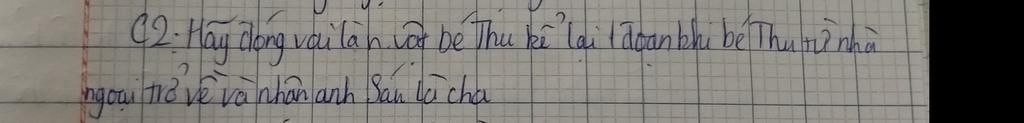 C2: Hãy đóng vai là n.vật bé Thu kể lại 1 đoạn khi bé Thu từ nhà
ngoại trở về và nhân anh Sáu là cha